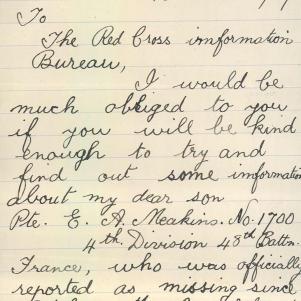 To
The Red Cross imformation
Bureau,
I would be
much obliged to you
if you will be kind
enough to try and
find out some imformation
about my dear son
Pte. E. A. Meakins. No. 1700
4th. Division 48th Battn.
France, who was officially
reported as missing since